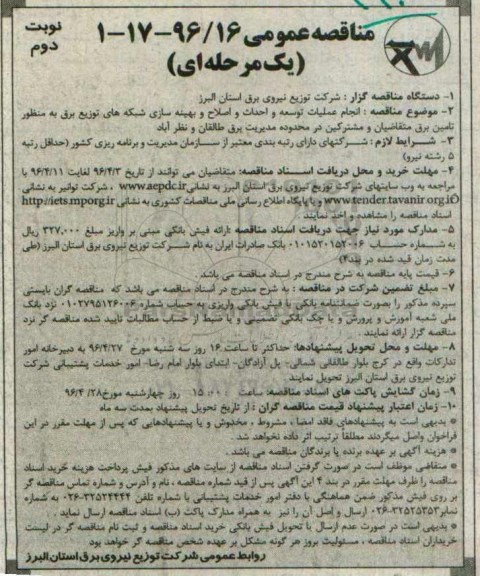 نوبت دوم
مناقصه عمومی ۹۶/۱۶-۱۷-۱
(یک مرحله ای)
۱- دستگاه مناقصه گزار : شرکت توزیع نیروی برق استان البرز
۲- موضوع مناقصه : انجام عملیات توسعه و احداث و اصلاح و بهینه سازی شبکه های توزیع برق به منظور
تامین برق متقاضیان و مشترکین در محدوده مدیریت برق طالقان و نظر آباد
۳- شرایط لازم : شرکتهای دارای رتبه بندی معتبر از سازمان مدیریت و برنامه ریزی کشور (حداقل رتبه
۵ رشته نیرو)
۴- مهلت خرید و محل دریافت اسناد مناقصه: متقاضیان می توانند از تاریخ ۹۶/۴/۳ لغایت ۹۶/۴/۱۱ با
مراجعه به وب سایتهای شرکت توزیع نیروی برق استان البرز به نشانی www.aepdc.ir ، شرکت توانیر به نشانی
www.tender.tavanir.org.ir و یا پایگاه اطلاع رسانی ملی مناقصات کشوری به نشانی http://iets.mporg.ir
اسناد مناقصه را مشاهده و اخذ نمایند
۵- مدارک مورد نیاز جهت دریافت اسناد مناقصه :ارائه فیش بانکی مبنی بر واریز مبلغ ۳۲۷,۰۰۰ ریال
به شماره حساب ۰۱۰۱۵۲۰۱۵۲۰۰۶ بانک صادرات ایران به نام شرکت توزیع نیروی برق استان البرز (طی
مدت زمان قید شده در بند۴)
۶- قیمت پایه مناقصه به شرح مندرج در اسناد مناقصه می باشد .
۷- مبلغ تضمین شرکت در مناقصه : به شرح مندرج در اسناد مناقصه می باشد که مناقصه گران بایستی
سپرده مذکور را بصورت ضمانتنامه بانکی یا فیش بانکی واریزی به حساب شماره ۰۱۰۲۷۹۵۱۲۶۰۰۶ نزد بانک
ملی شعبه آموزش و پرورش و یا چک بانکی تضمینی و یا ضبط از حساب مطالبات تایید شده مناقصه گر نزد
مناقصه گزار ارائه نمایند .
۸- مهلت و محل تحویل پیشنهادها: حداکثر تا ساعت ۱۶ روز سه شنبه مورخ ۹۶/۴/۲۷ به دبیرخانه امور
تدارکات واقع در کرج بلوار طالقانی شمالی- پل آزادگان- ابتدای بلوار امام رضا- امور خدمات پشتیبانی شرکت
توزیع نیروی برق استان البرز تحویل نمایند .
۹- زمان گشایش پاکت های اسناد مناقصه: ساعت ۱۵:۰۰ روز چهارشنبه مورخ۹۶/۴/۲۸
۱۰- زمان اعتبار پیشنهاد قیمت مناقصه گران : از تاریخ تحویل پیشنهاد بمدت سه ماه
* بدیهی است به پیشنهادهای فاقد امضا ، مشروط ، مخدوش و یا پیشنهادهایی که پس از مهلت مقرر در این
فراخوان واصل میگردند مطلقا ترتیب اثر داده نخواهد شد .
* هزینه آگهی بر عهده برنده یا برندگان مناقصه می باشد .
* متقاضی موظف است در صورت گرفتن اسناد مناقصه از سایت های مذکور فیش پرداخت هزینه خرید اسناد
مناقصه را ظرف مهلت مقرر در بند ۴ این آگهی پس از قید شماره مناقصه ، نام و آدرس و شماره تماس مناقصه گر
بر روی فیش مذکور ضمن هماهنگی با دفتر امور خدمات پشتیبانی با شماره تلفن ۳۲۵۲۴۴۴۴-۰۲۶ به شماره
نمابر۳۲۵۲۵۳۵۳-۰۲۶ ارسال و اصل آن را نیز به همراه مدارک پاکت (ب) اسناد مناقصه ارسال نماید .
* بدیهی است در صورت عدم ارسال یا تحویل فیش بانکی خرید اسناد مناقصه و ثبت نام مناقصه گر در لیست
خریداران اسناد مناقصه ، مسئولیت بروز هر گونه مشکل بر عهده شخص مناقصه گر خواهد بود
روابط عمومی شرکت توزیع نیروی برق استان البرز